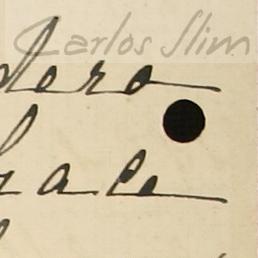 Carlos Slim
dero
gale